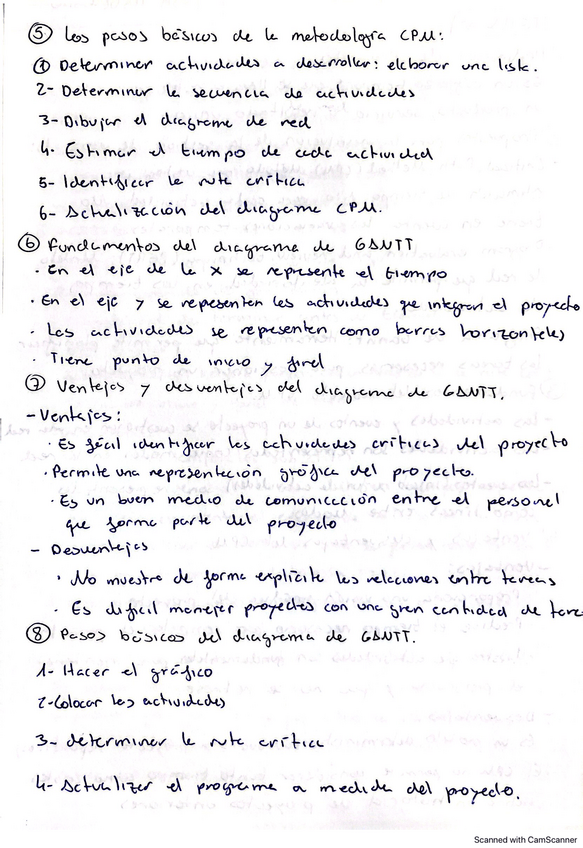 ⑤ Los pasos básicos de la metodología CPM:
① Determinar actividades a desarrollar: elaborar una lista.
2- Determinar la secuencia de actividades
3- Dibujar el diagrama de red
4- Estimar el tiempo de cada actividad
5- Identificar la ruta crítica
6- Actualización del diagrama CPM.
⑥ Fundamentos del diagrama de GANTT
· En el eje de la x se representa el tiempo
· En el eje y se representan las actividades que integran el proyecto
· Las actividades se representan como barras horizontales
· Tiene punto de inicio y final
⑦ Ventajas y desventajas del diagrama de GANTT.
- Ventajas:
· Es fácil identificar las actividades críticas del proyecto
· Permite una representación gráfica del proyecto.
· Es un buen medio de comunicación entre el personal
que forma parte del proyecto
- Desventajas
· No muestra de forma explícita las relaciones entre tareas
· Es difícil manejar proyectos con una gran cantidad de tare
⑧ Pasos básicos del diagrama de GANTT.
1- Hacer el gráfico
2- Colocar las actividades
3- determinar la ruta crítica
4- Actualizar el programa a medida del proyecto.
Scanned with CamScanner